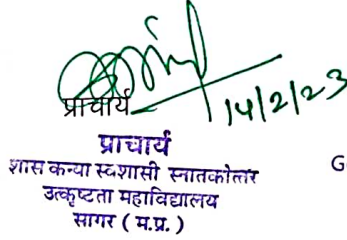 प्राचार्य
14/2/23
प्राचार्य
शास कन्या स्वशासी स्नातकोत्तर
उत्कृष्टता महाविद्यालय
सागर ( म.प्र. )
G